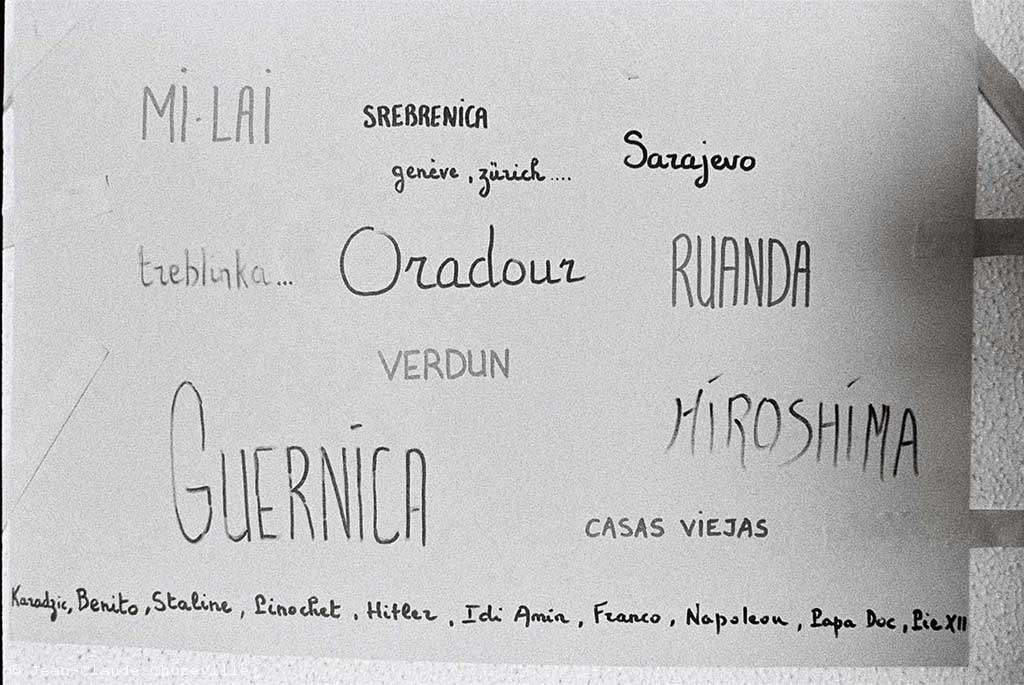 MI·LAI
SREBRENICA
genève, zürich....
Sarajevo
treblinka...
Oradour
RUANDA
VERDUN
GUERNICA
HIROSHIMA
CASAS VIEJAS
Karadzic, Benito, Staline, Pinochet, Hitler, Idi Amin, Franco, Napoleon, Papa Doc, Pie XII
© Jean-Claude